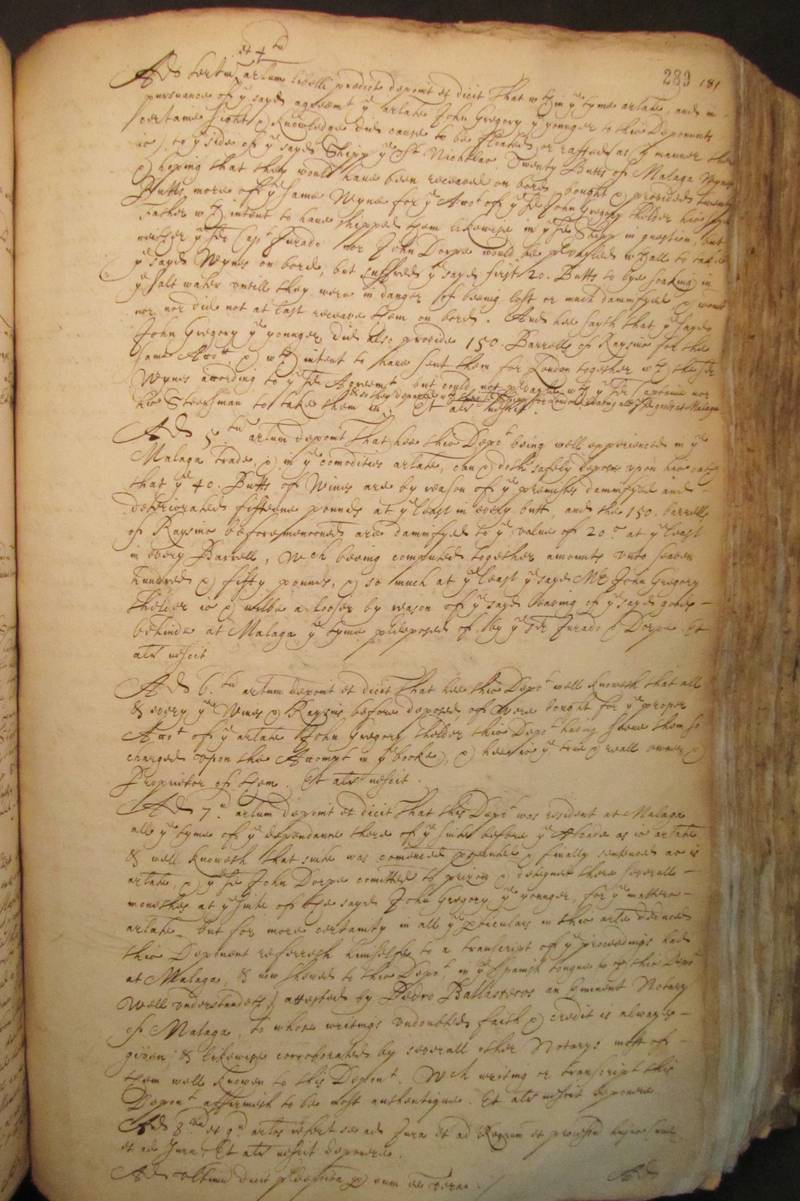 et 4tum
289 181
Ad tertium artlum libelli predicti deponit et dicit That wthin ye tyme artlate, and in
pursuance of ye sayd agreemt ye artlate John Gregory ye younger to this Deponents
certaine sight & knowledge did cause to be floated, or rafted as ye manner there
is, to ye side of ye sayd Shipp ye St Nicholas Twenty Butts of Malaga Wynes
& hoping that they would have been received on bord, bought & provided twenty
Butts more of ye same Wyne for ye Accot of ye sd John Gregory th'elder his
Father wth intent to have shipped them likewise in ye sd Shipp in question, but
neither ye sd Capt Jurado nor John Dorpe would be prevayled wthall to take
ye sayd Wyns on bord, but suffred ye sayd first 20. Butts to lye soaking in
ye salt water untill they were in danger of being lost or much damnifyed & would
not nor did not at last receave them on bord. And hee sayth that ye sayd
John Gregory ye younger did also provide 150. Barrells of Raysins for the
same Accott & wth intent to have sent them for London together wth the sd
Wynes according to ye sd Agreemt but could not prevayle wth ye sd Captaine nor
his Steersman to take them in, Et alr nescit
Ad 5tum artlum deponit That hee this Depot being well experienced in ye
Malaga trade, & in ye comodities artlate, can & doth safely depose upon his oath
that ye 40. Butts of Wines are by reason of ye premisses damnifyed and
deteriorated fifteene pounds at ye least in every butt, and the 150. barrells
of Raysins beforementioned are damnifyed to ye value of 20s at ye least
in every Barrell, Wch being computed together amounts unto seaven
hundred & fifty pounds, & so much at ye least ye sayd Mr John Gregory
th'elder is & wilbe a looser by reason of ye sayd leaving of ye sayd goods
behinde at Malaga ye tyme predeposed of by ye sd Jurado & Dorpe Et
alr nescit
Ad 6.tum artlum deponit et dicit That hee this Depot well knoweth that all
& every ye Wines & Raysins before deposed of were bought for ye proper
Accot of ye artlate John Gregory th'elder this Depot having seene them so
charged upon the Accompt in ye booke, & hee is ye true & reall owner &
Proprietor of them. Et alr nescit.
Ad 7.um artlum deponit et dicit That this Depot was resident at Malaga
all ye tyme of ye dependance there of ye suite before ye Alcade as is artlate
& well knoweth that suite was comenced prosecuted & finally sentenced as is
artlate, & ye sd John Dorpe comitted to prison & deteyned there severall
monethes at ye suite of the sayd John Gregory ye younger, for ye matters
artlate, but for more certainty in all ye perticulars in this artle deduced
this Deponent referreth himselfe to a transcript of ye proceedings had
at Malaga, & now shewed to this Depot in ye Spanish tongue wch this Depot
Well understandeth, attested by Pedro Ballasteros an eminent Notary
of Malaga, to whose writings undoubted faith & credit is alwayes
given, & likewise corroborated by severall other Notarys most of
them well knowen to this Deponent. Wch writing or transcript this
Deponent affirmeth to be most authentique. Et alr nescit deponere
Ad 8vum et 9. artlos nescit
et Jura, Et alr nescit deponere.
Ad ultimu dicit predeposita p eum esse vera.
Ad